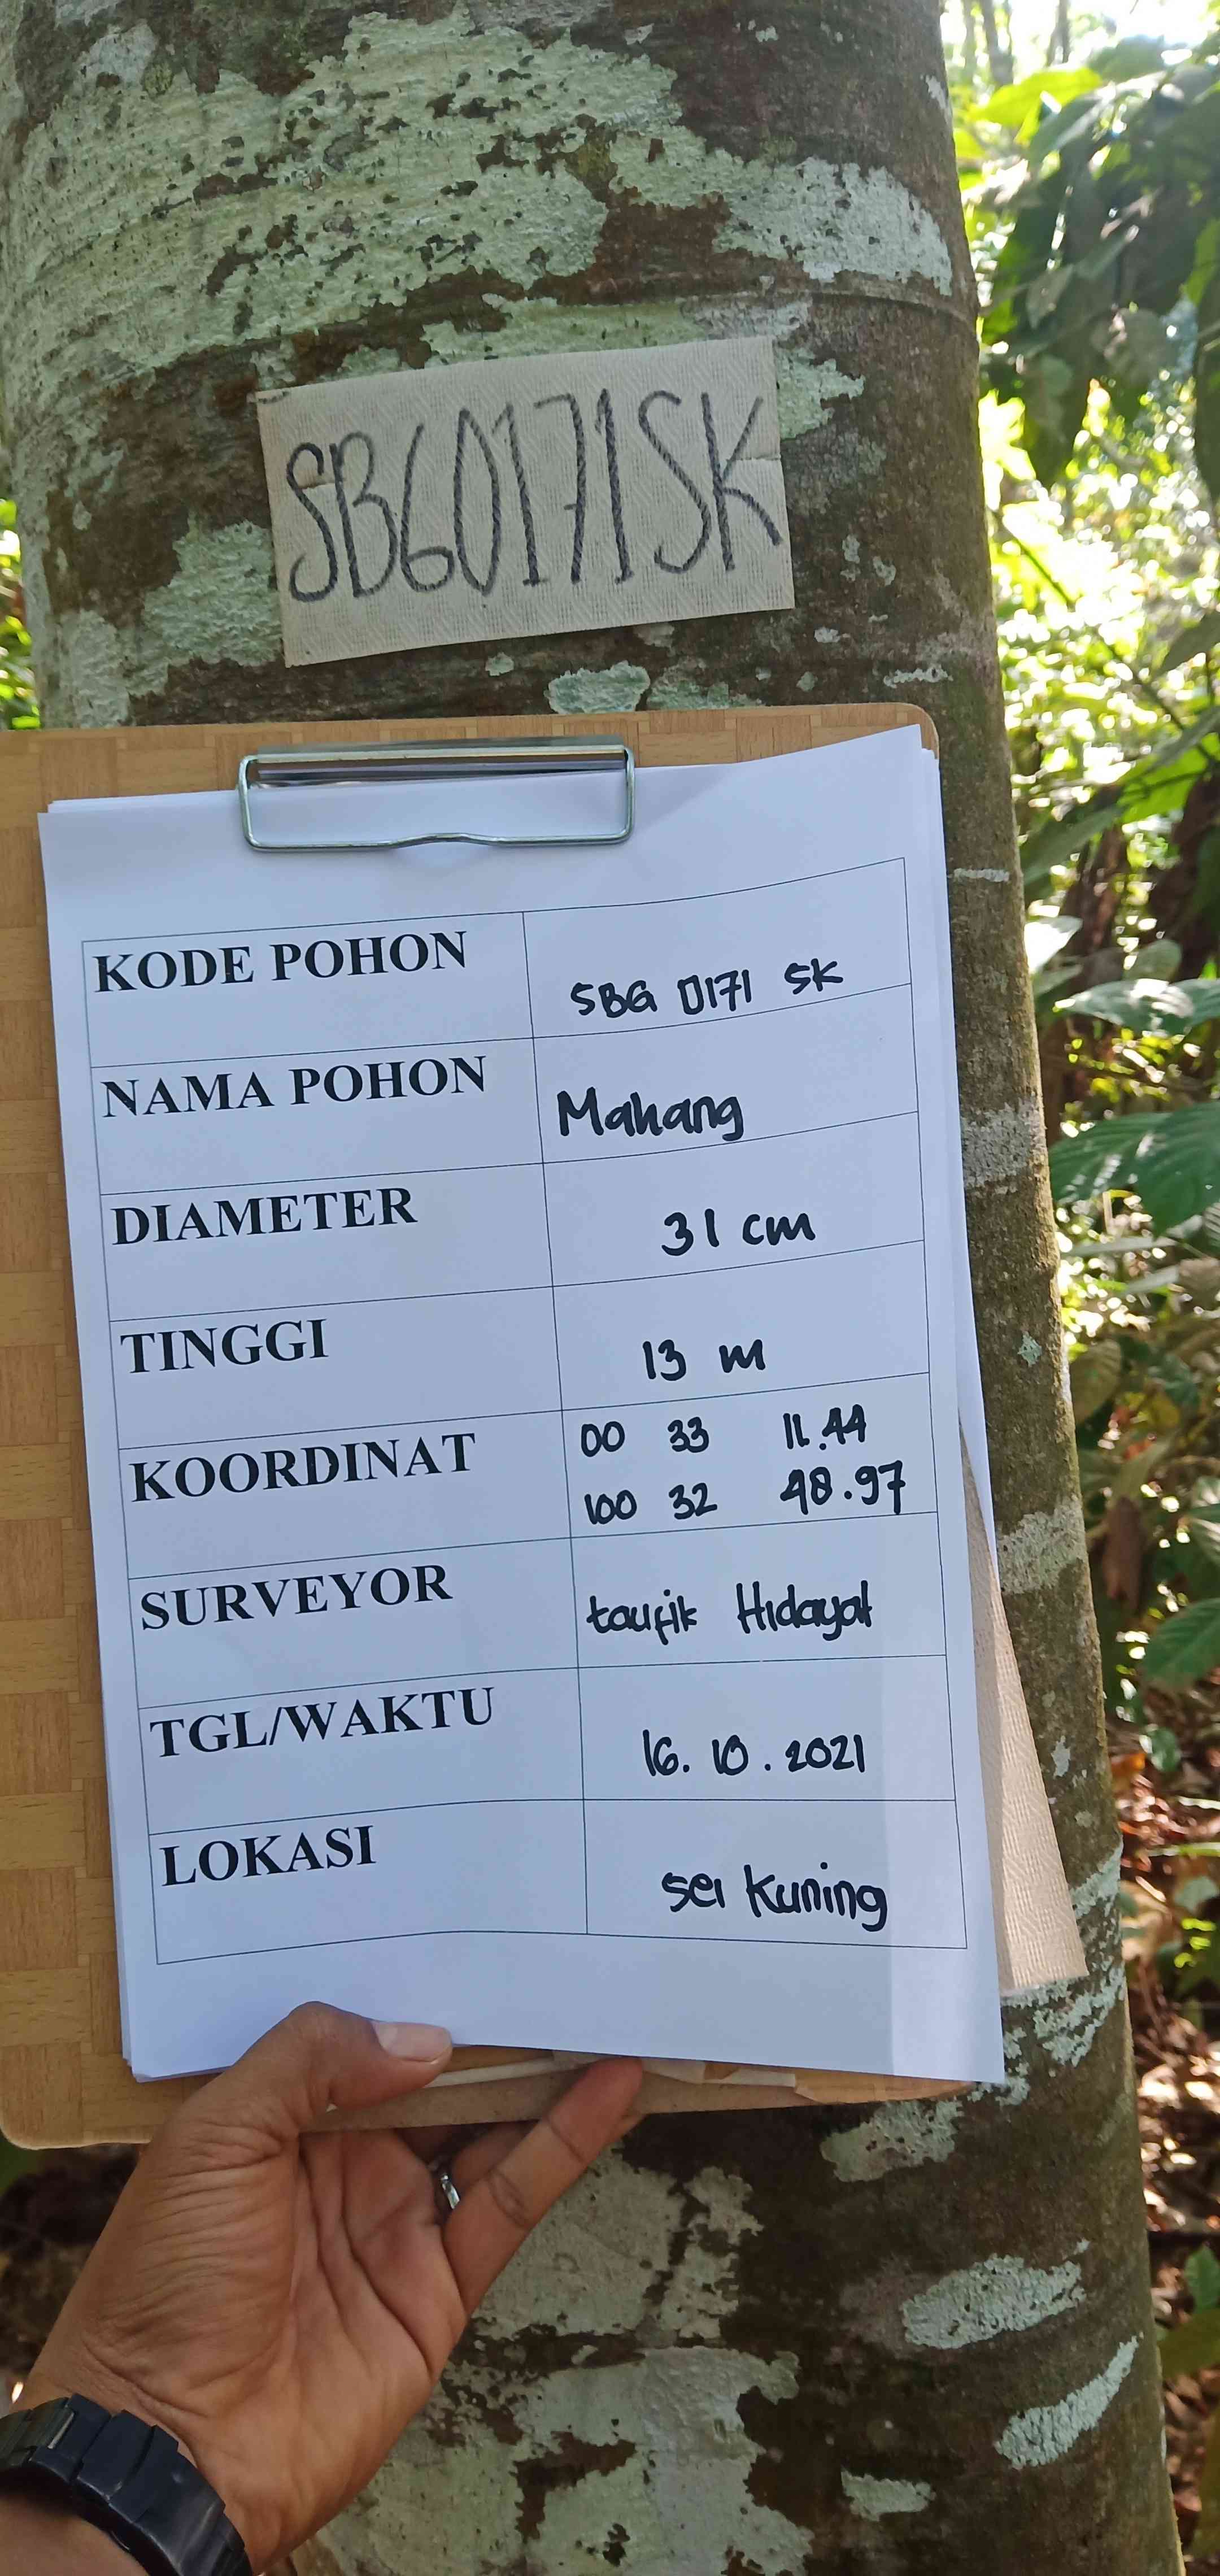 SBG0171SK
KODE POHON SBG 0171 SK
NAMA POHON Mahang
DIAMETER 31 cm
TINGGI 13 m
KOORDINAT 00 33 11.44
100 32 48.97
SURVEYOR taufik Hidayat
TGL/WAKTU 16. 10. 2021
LOKASI sei Kuning